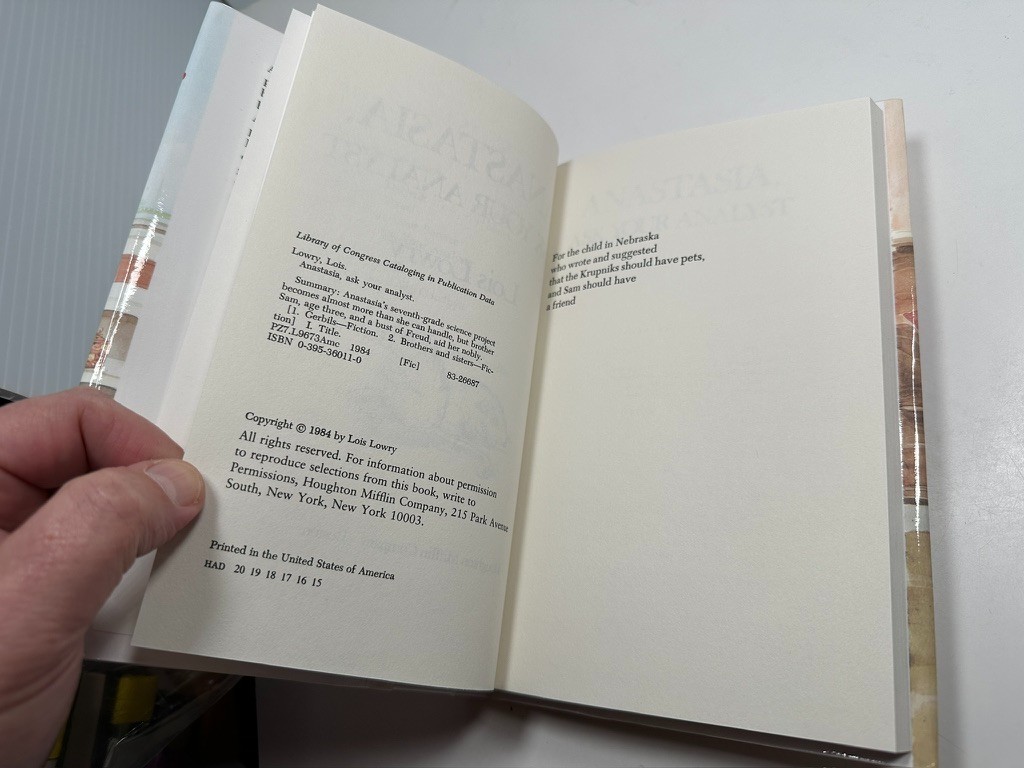 Library of Congress Cataloging in Publication Data
Lowry, Lois.
Anastasia, ask your analyst.
Summary: Anastasia's seventh-grade science project
becomes almost more than she can handle, but brother
Sam, age three, and a bust of Freud, aid her nobly.
[1. Gerbils—Fiction. 2. Brothers and sisters—Fic-
tion] I. Title.
PZ7.L9673Amc 1984 [Fic] 83-26687
ISBN 0-395-36011-0
Copyright © 1984 by Lois Lowry
All rights reserved. For information about permission
to reproduce selections from this book, write to
Permissions, Houghton Mifflin Company, 215 Park Avenue
South, New York, New York 10003.
Printed in the United States of America
HAD 20 19 18 17 16 15
For the child in Nebraska
who wrote and suggested
that the Krupniks should have pets,
and Sam should have
a friend